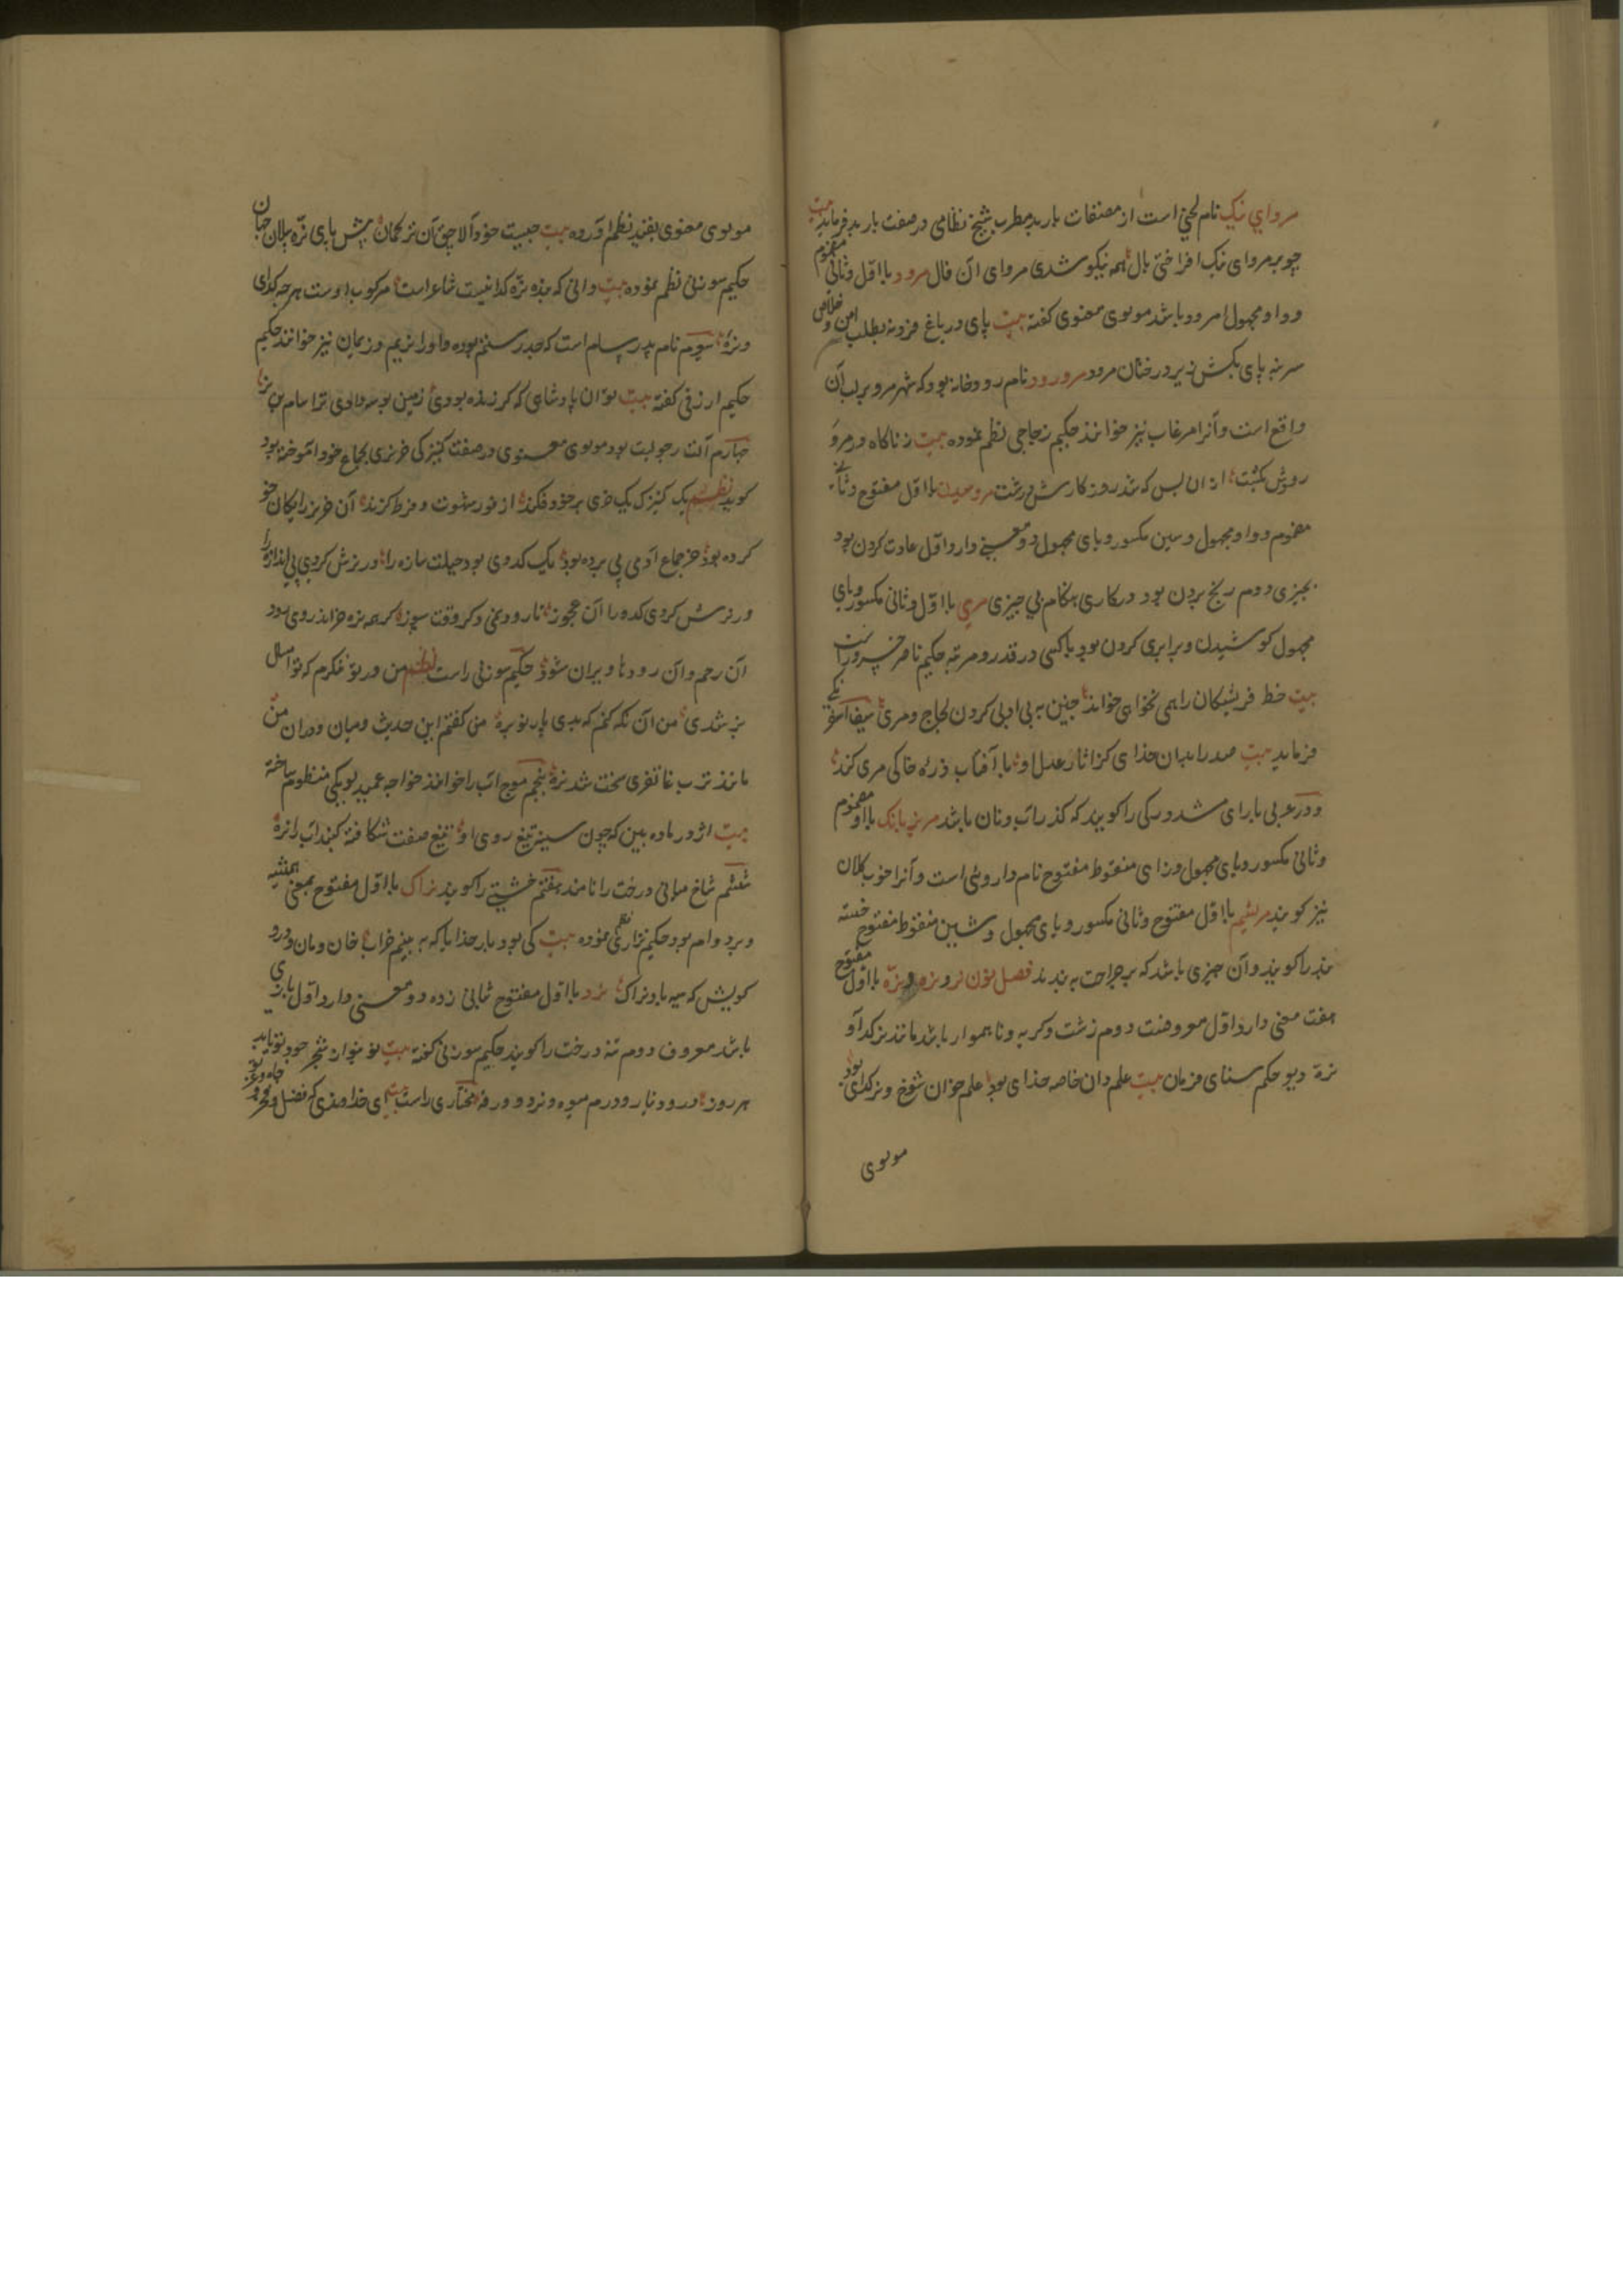 مروای نیک نام لحنی است از مصنفات باربد مطرب شیخ نظامی در صفت باربد فرماید بیت
چو بر مروای نیک افراختی بال همه نیکو شدی مروای آن فال مرود با اول و ثانی مضموم
و واو مجهول امرود باشد مولوی معنوی گفته بیت پای در باغ خرد نه بطلب امن و خلاص
سر بنه پای بکش زیر درختان مرود مرورود نام رودخانه بود که شهر مرو بر لب آن
واقع است و آنرا مرغاب نیز خوانند حکیم زجاجی نظم نموده بیت ز ناگاه در مرو
رودش بکشت از ان پس که بد روزگارش درشت مروسیدن با اول مفتوح و ثانی
مضموم و واو مجهول و سین مکسور و یای مجهول دو معنی دارد اول عادت کردن بود
بچیزی دوم رنج بردن بود در کاری بهنگام بی چیزی مری با اول و ثانی مکسور و یای
مجهول کوشیدن و برابری کردن بود با کسی در قدر و مرتبه حکیم ناصر خسرو راست
بیت خط فریشتگان را همی نخواهی خواند چنین به بی ادبی کردن لجاج و مری سیف اسفرنگی
فرماید بیت صدرا بدان خدای کز اثار عدل او با آفتاب ذره خاکی مری کند
و در عربی با رای مشدد رگی را گویند که گذر آب و نان باشد مریزبانک با اول مضموم
و ثانی مکسور و یای مجهول و زای منقوط مفتوح نام داروئی است و آنرا خوب کلان
نیز گویند مریشم با اول مفتوح و ثانی مکسور و یای مجهول و شین منقوط مفتوح خسته
بند را گویند و آن چیزی باشد که بر جراحت به بندند فصل نون نر و نره و نرّه با اول مفتوح
هفت معنی دارد اول معروفست دوم زشت و کریه و ناهموار باشد مانند نر گدا و
نرة دیو حکیم سنای فرمان بیت علم دان خاصه خدای بود علم خوان شوخ و نر گدای بود
مولوی
مولوی معنوی بقید نظم آورده بیت چیست خود آلاجق آن ترکمان پیش پای نره پیلان جهان
حکیم سوزنی نظم نموده بیت دانی که بنده نره گدا نیست شاعر است مرکوب اوست هرچه گدای
و نره سوم نام پدر سام است که جد رستم بوده و او را نریم و نریمان نیز خوانند حکیم
حکیم ازرقی گفته بیت تو آن پادشاهی که گر زنده بودی زمین بوسه دادی ترا سام بن نر
چهارم آلت رجولیت بود مولوی معنوی در صفت کنیزکی خر نری بجماع خود آموخته بود
گوید نظم یک کنیزک یک خری بر خود فکند از وفور شهوت و فرط گزند آن خر نر را بگان خو
کرده بود خر جماع آدمی پی برده بود یک کدوی بود حیلت سازه را در نرش کردی پی اندازه را
در نرش کردی کدو را آن عجوز تا رود نیمی ذکر وقت سپوز گر همه نره خر اندر وی رود
آن رحم و آن رودها ویران شود حکیم سوزنی راست نظم من در تو ننگرم که تو امسال
نر شدی من آن نگه کنم که بدی پار نوبره من گفتم این حدیث و میان دو ران من
مانند ترب غاتفری سخت شد نره پنجم موج آب را خوانند خواجه عمید لویکی منظوم ساخته
بیت اژدر ماده بین که چون سینه تیغ روی او تیغ صفت شکافته گنبد آب را نره
ششم شاخ میانی درخت را نامند هفتم خشتی را گویند نراک با اول مفتوح بمعنی همیشه
و برد وام بود حکیم نزاری نظم نموده بیت کی بود یا رب خدایا که به بینم خراب خان و مان و درد
گویش که سیه باد نراک نرد با اول مفتوح بثانی زده دو معنی دارد اول بازی
باشد معروف دوم تنه درخت را گویند حکیم سوزنی گفته بیت
هر روز مختاری راست بیت ای خداوندی که فضل و فخر